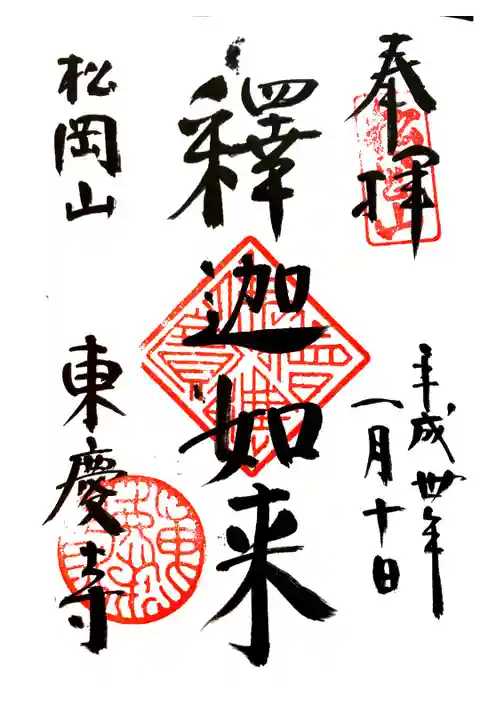 奉拝
平成卅年
一月十日
釋迦如来
松岡山
東慶寺